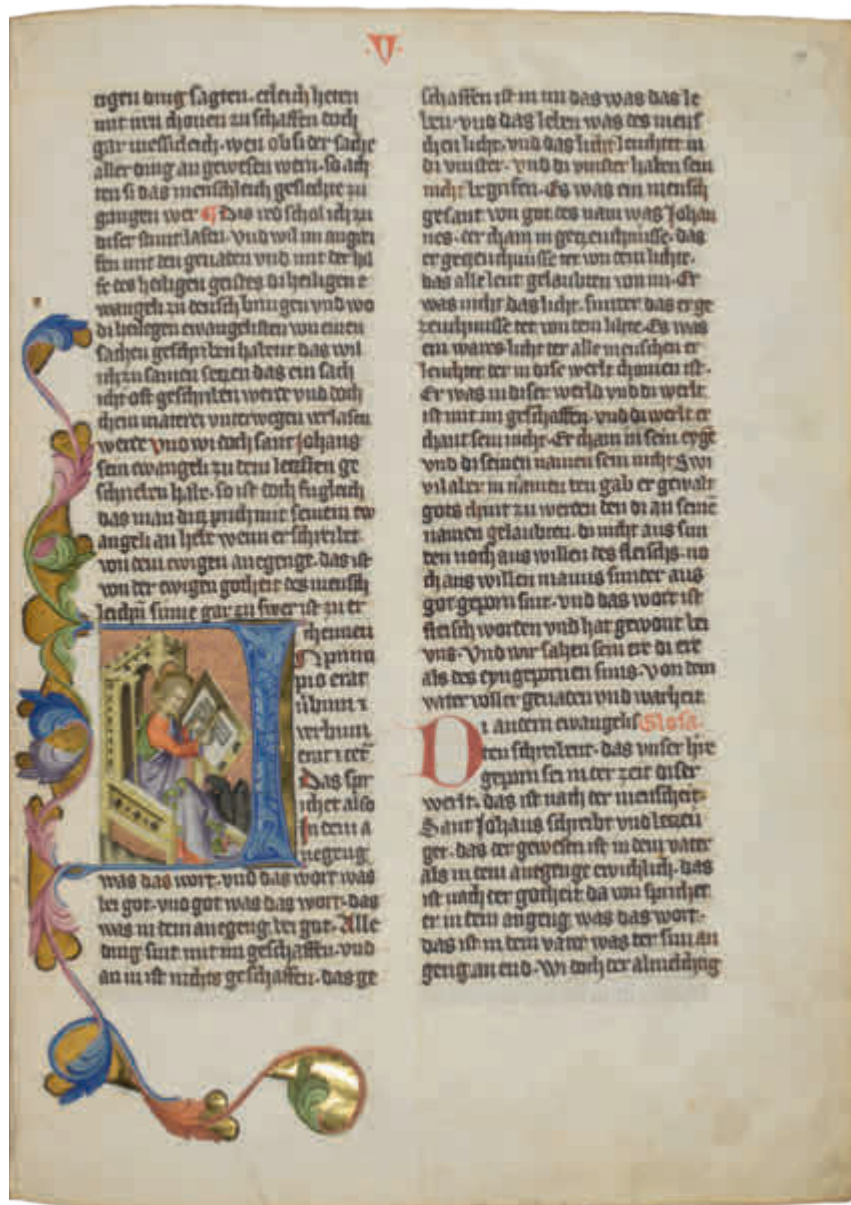 ·V·
eigen ding sagten. erleich heten
mit nen chomen zu schaffen doch
gar messicleich. wen ob si der sache
aller ding an gewesen wern. so ach
ten si das menschleich geslechte zu
gangen wer ¶ Dis scholich zu
diser stunt lasen. vnd wil im angrei
fen mit den genaden vnd mit der hil
fe des heiligen geistes di heiligen e
wangeli zu deusch bringen vnd wo
di heilegen ewangelisten von einen
sachen geschriben habent das wil
ich zu samen setzen das ein sach
icht oft geschriben werde vnd doch
chein materei vnterwegen verlasen
werde vnd wi doch sant Johans
sein ewangeli zu dem lecsten ge
schrieben habe. so ist doch fugleich
das man diz puch mit seinem ew
angeli an hebt wenn er schreibet
von dem ewigen anegenge. das ist
von der ewigen gotheit des mensch
leichen sinne gar zu swer ist zu er
chennen
In prinn
pio erat
verbum
erat
Das spr
ichet also
In dem a
negeng
was das wort. vnd das wort was
bei got. vnd got was das wort. das
was in dem anegeng bei got. Alle
ding sint mit im geschaffen. vnd
an in ist nichts geschaffen. das ge
schaffen ist in im das was das le
ben. vnd das leben was des mens
chen licht. vnd das licht leuchtet in
di vinster. vnd di vinster haben sein
nicht begrifen. Es was ein mensch
gesant von got. des nam was Johan
nes. der cham in gezeuchnusse. das
er gezeuchnusse ter von dem lichte.
das alle leut gelaubten von im. Er
was nicht das licht. sunter das er ge
zeuchnusse ter von dem lihte. Es was
ein wares licht der alle menschen er
leuchtet der in dise werlt chomen ist.
Er was in diser werld vnd di werlt
ist mit im geschaffen. vnd di werlt er
chant sein nicht. Er cham in sein eyge
vnd di seinen namen sein nicht Swi
vil aber in namen den gab er gewalt
gots chint zu werden den di an seinē
namen gelaubten. di nicht aus sun
den noch aus willen des fleischs. no
ch aus willen mannes sunder aus
got geporn sint. vnd das wort ist
fleisch worden vnd hat gewont bei
vns. Vnd wir sahen sein ere di ere
als des eyngepornen suns. von dem
vater voller genaden vnd warheit
Di andern ewangelis Glosa.
ten schreibent. das vnser hre
geporn sei in der zeit diser
werlt. das ist nach der menscheit.
Sant Johans schreibt vnd bezeu
get. das der gewesen ist in dem vater
als in dem anegenge ewichlich. das
ist nach der gotheit da von sprichet
er in dem angeng was das wort.
das ist in dem vater was der sun an
geng an end. Wi doch der almechtig